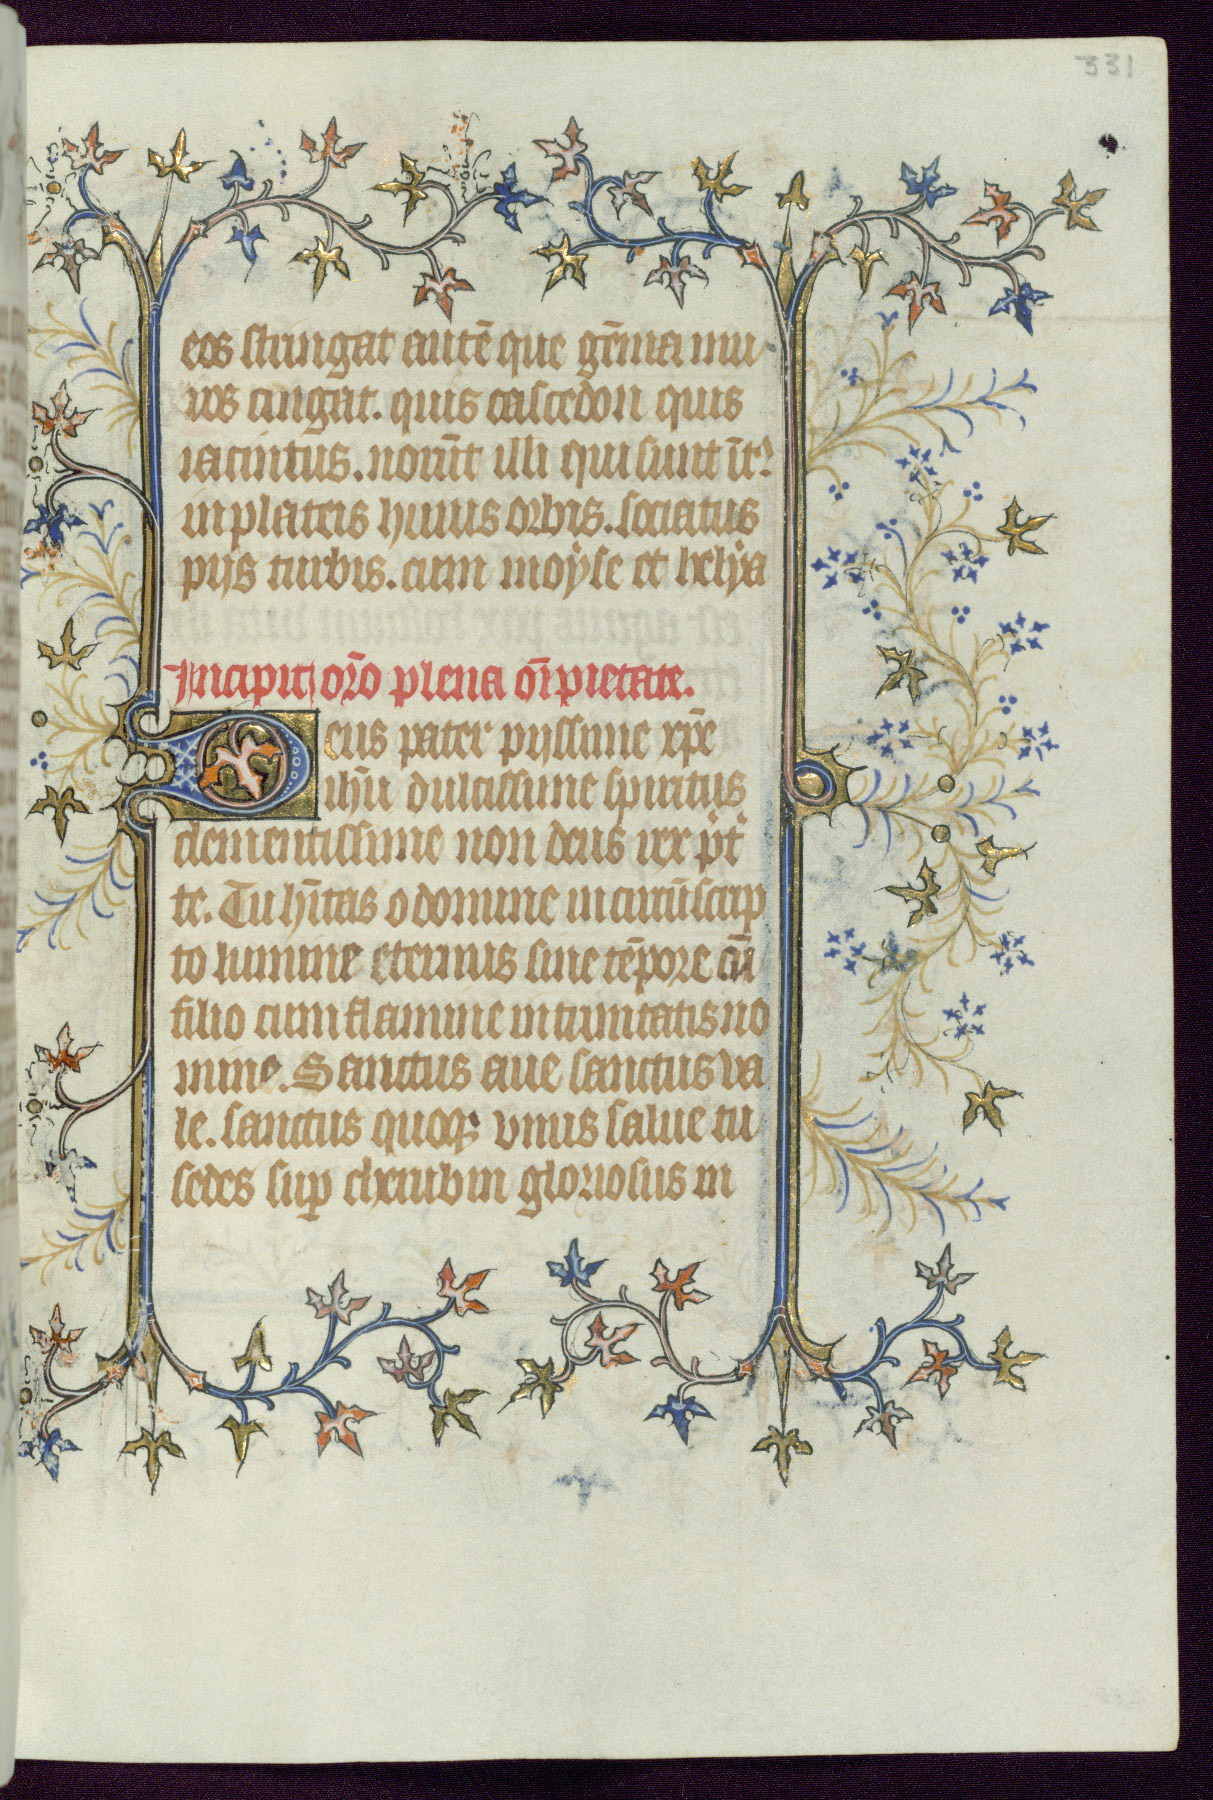 331
eos stringat autē que gēma mu
ros cingat. quis calcedon quis
iacintus. norūt illi qui sunt īt᷑
in plateis huius orbis. sociatus
pijs turbis. cum moyse et helya
Incipit orō plena oī pietate.
Deus pater pijssime xp̄e
ihū dulcissime spiritus
clementissime non deus rex pͥt
te. Tu hītas o domine in circūscrip
to lumine eternus sine tēpore cū
filio cum flamine in trinitatis no
mine. Sanctus aue sanctus va
le. sanctus quoqꝫ vnus salue tu
sedes sup cherubin gloriosus in